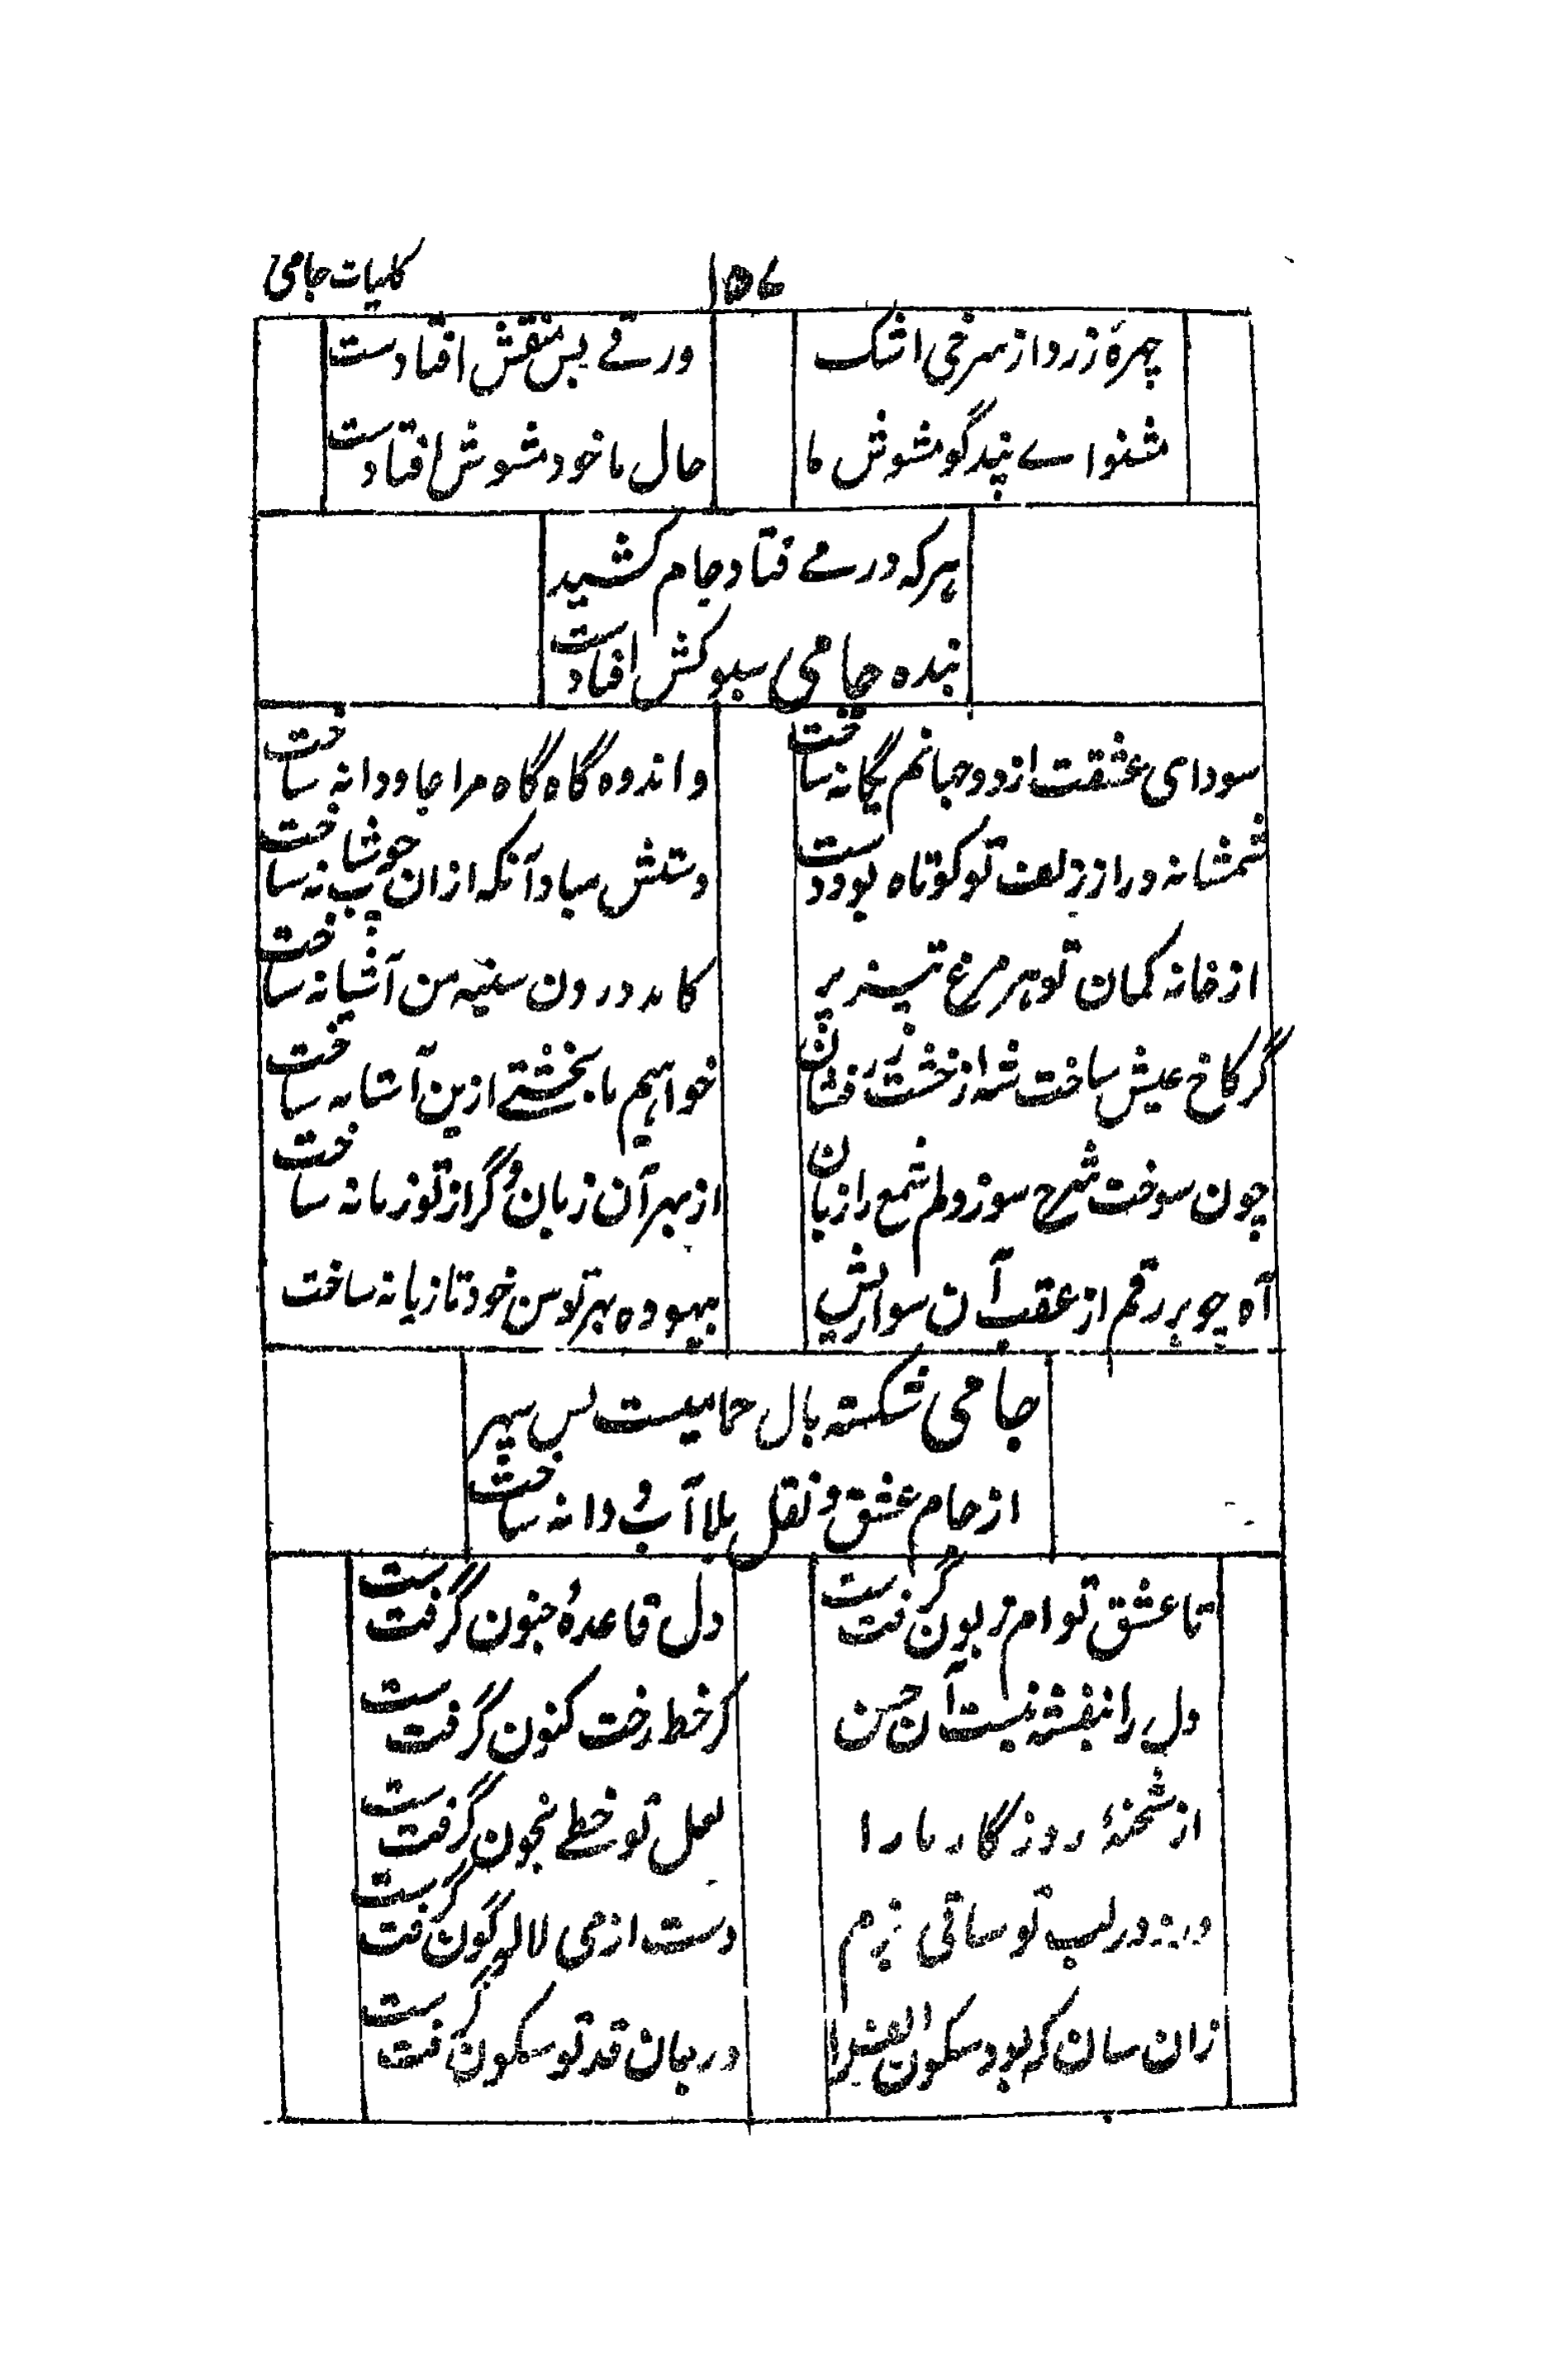 کلیات جامی
۱۵۶
چهرهٔ زرد از سرخی اشک
ورقے بس منقش افتادست
مشنو اے پندگو مشوش ما
حال ما خود مشوش افتادست
هرکه در مے فتاد جام کشید
بنده جامی سبوکش افتادست
سودای عشقت از دو جهانم یگانه ساخت
و اندوه گاه گاه مرا جاودانه ساخت
شمشانه در از زلف تو کوتاه بود دست
دستش مباد آنکه ازان چوب شانه ساخت
از خانه کمان تو هر مرغ تیز پر
کامد درون سینه من آشیانه ساخت
گر کاخ عیش ساخت شه از خشت زر فشان
خواهیم ما بخشتے ازین آستانه ساخت
چون سوخت شرح سوز دلم شمع را زبان
از بهر آن زبان دگر از تو زمانه ساخت
آه چو بر رقم از عقب آن سواریش
بیهوده بهر توسن خود تازیانه ساخت
جامی شکسته بال حمامیست بس سپهر
از جام عشق و نقل بلا آب و دانه ساخت
تا عشق توام زبون گرفتست
دل قاعدهٔ جنون گرفتست
دل را بنفشه نیست آن حسن
کز خط رخت کنون گرفتست
از شحنهٔ روزگار ما را
لعل تو خطے بخون گرفتست
در دور لب تو ساقی بزم
دست از می لاله گون گرفتست
زان سان که بود سکون الف را
در جان قد تو سکون گرفتست